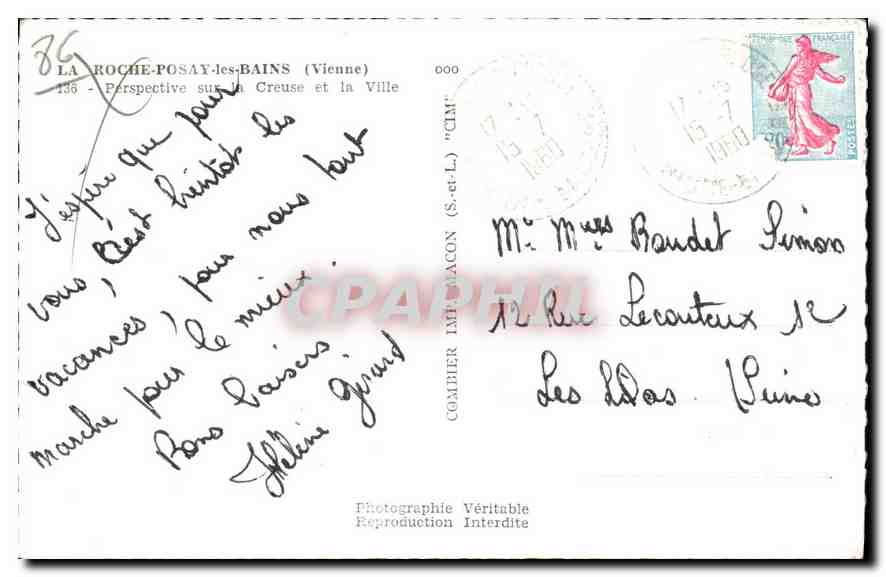 86
LA ROCHE-POSAY-les-BAINS (Vienne)
136 - Perspective sur la Creuse et la Ville
J'espère que pour
vous, c'est bientôt les
vacances, pour nous tout
marche pour le mieux.
Bons baisers
Hélène Girard
COMBIER IMP. MACON (S.-et-L.) "CIM"
ooo
17
15 - 7
1960
17
15 - 7
1960
FRANÇAISE
POSTES
Mr Mmes Baudet Simon
12 Rue Lecouteux 12
Les Lilas. Seine
CPAPHIL
Photographie Véritable
Reproduction Interdite